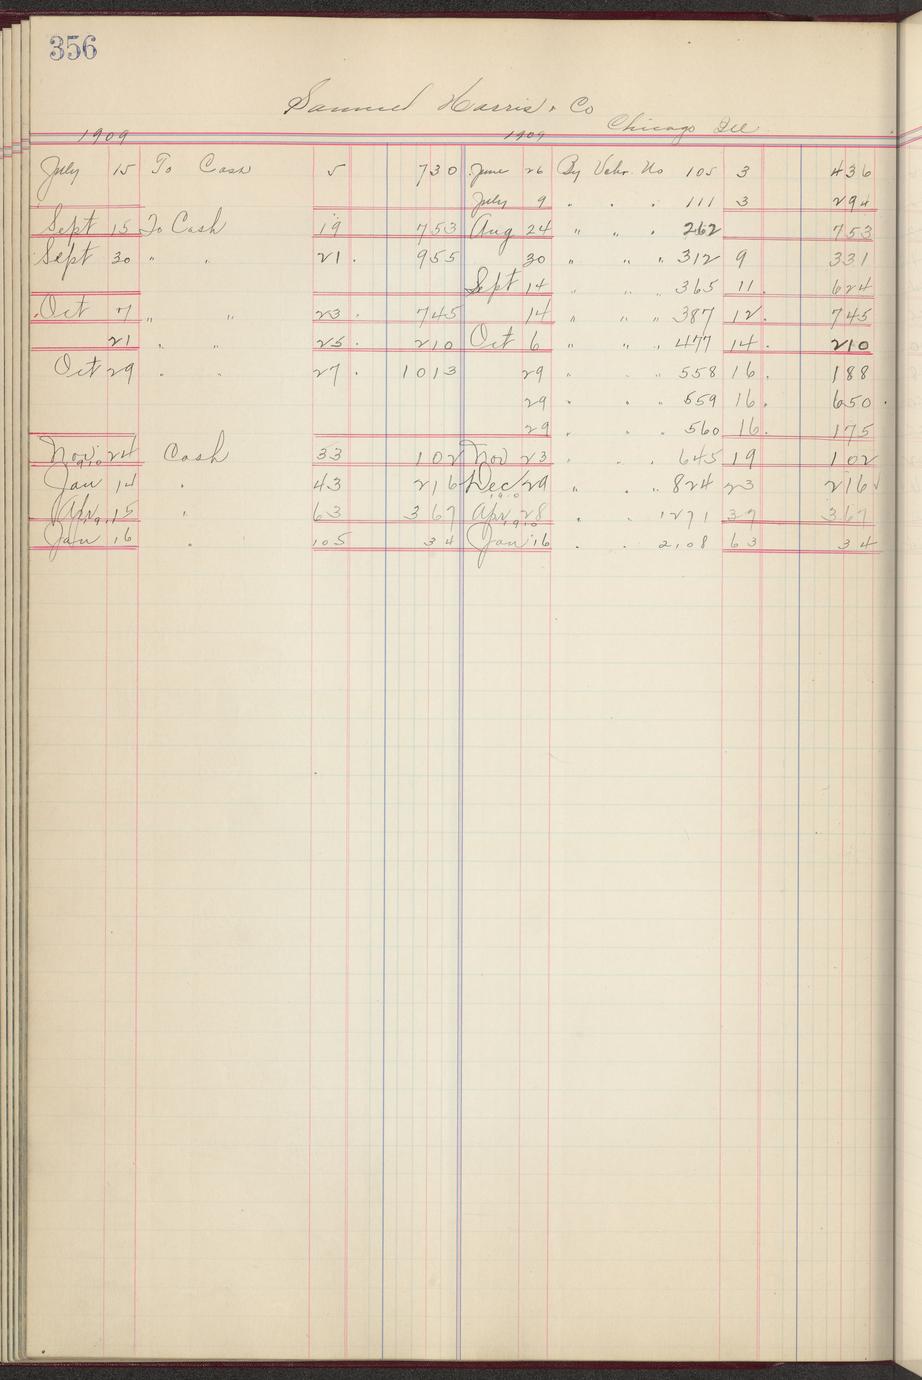 356
Samuel Harris & Co
Chicago Ill
1909 1909
July 15 To Cash 5 730 June 26 By Vchr. No 105 3 436
July 9 " " " 111 3 294
Sept 15 To Cash 19 753 Aug 24 " " " 262 753
Sept 30 " " 21 . 955 30 " " " 312 9 331
Sept 14 " " " 365 11 . 624
Oct 7 " " 23 . 745 14 " " " 387 12 . 745
21 " " 25 . 210 Oct 6 " " " 477 14 . 210
Oct 29 " " 27 . 1013 29 " " " 558 16 . 188
29 " " " 559 16 . 650
29 " " " 560 16 . 175
Nov 24 Cash 33 102 Nov 23 " " " 645 19 102
1910
Jan 14 " 43 216 Dec 29 " " " 824 23 216
1910
Apr 15 " 63 367 Apr 28 " " 1271 37 367
191 1910
Jan 16 " 105 34 Jan 16 " " 2108 63 34